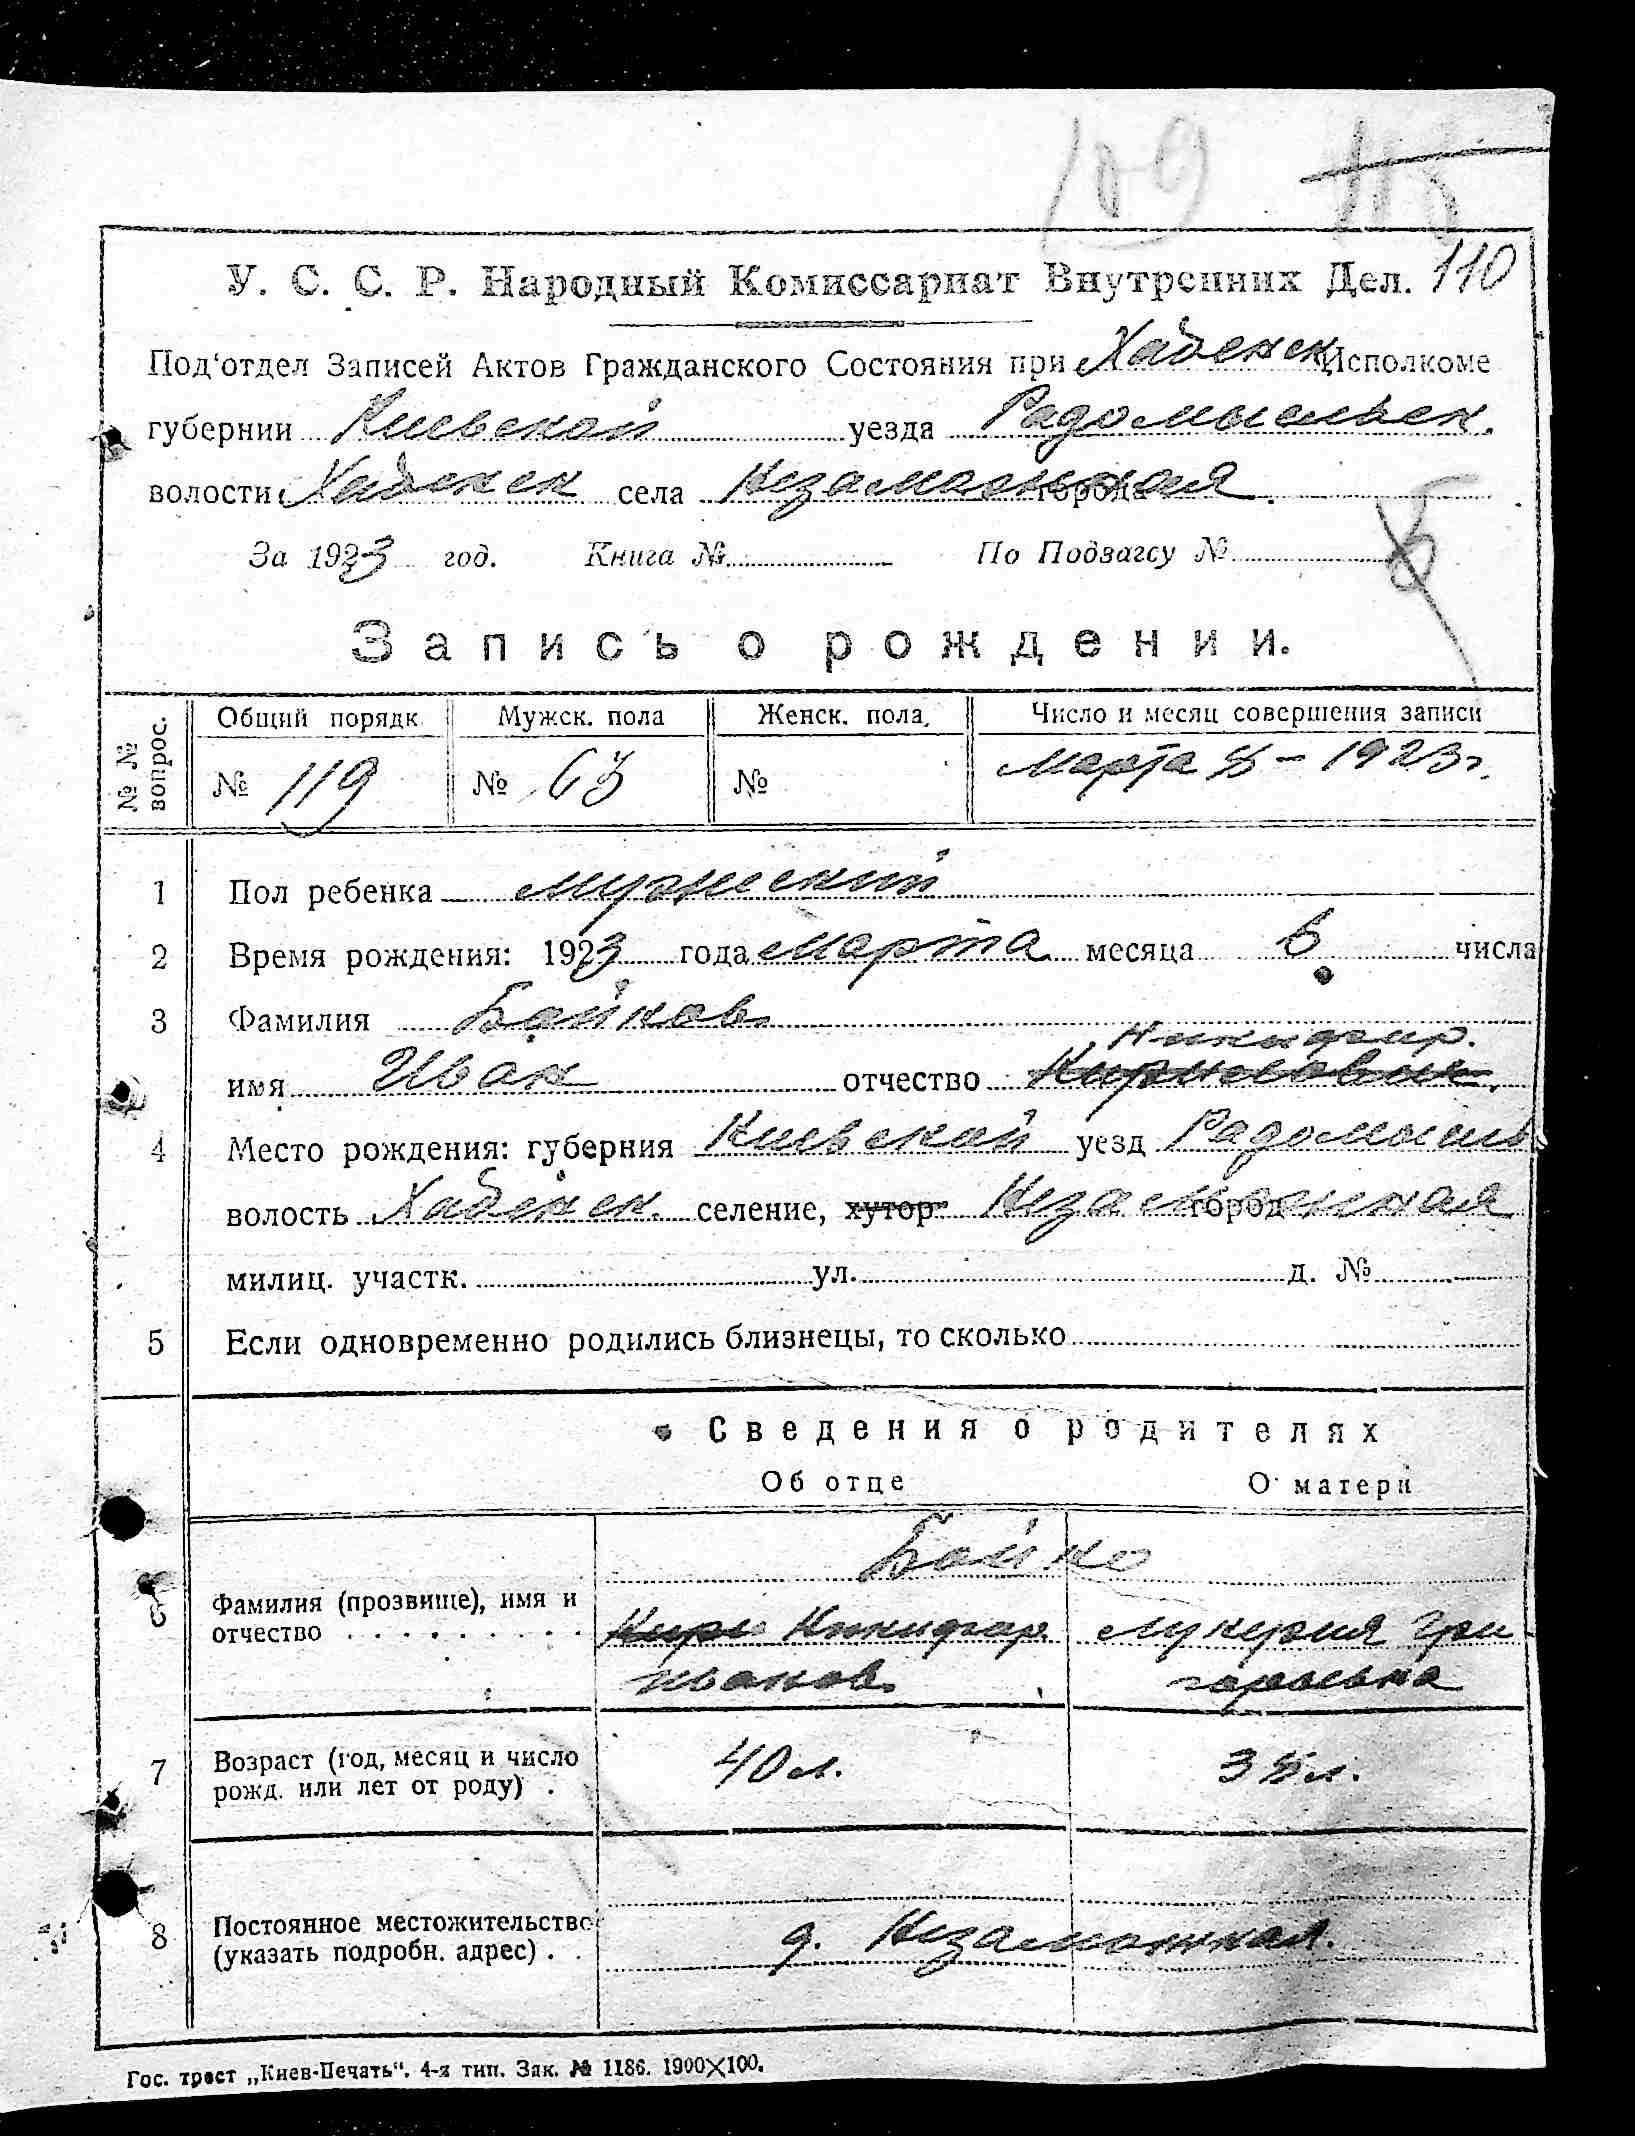 109 115
У. С. С. Р. Народный Комиссариат Внутренних Дел. 110
Под'отдел Записей Актов Гражданского Состояния при Хабенск Исполкоме
губернии Киевской уезда Радомысльск.
волости Хабенск села Незаможная города
За 1923 год. Книга № По Подзагсу №
Запись о рождении.
№№ вопрос. Общий порядк. Мужск. пола Женск. пола. Число и месяц совершения записи
№ 119 № 63 № Марта 8 – 1923 г.
1 Пол ребенка мужеский
2 Время рождения: 1923 года Марта месяца 6 числа
3 Фамилия Бойков
Никифор.
имя Иван отчество
4 Место рождения: губерния Киевской уезд Радомысль
волость Хабенск. селение, хутор Незаможная город
милиц. участк. ул. д. №
5 Если одновременно родились близнецы, то сколько
Сведения о родителях
Об отце О матери
Бойко
6 Фамилия (прозвище), имя и отчество Кири Никифор Иванов. Лукерия Григорьевна
7 Возраст (год, месяц и число рожд. или лет от роду) 40 л. 35 л.
8 Постоянное местожительство (указать подробн. адрес) д. Незаможная.
Гос. трест „Киев-Печать". 4-я тип. Зак. № 1186. 1900×100.